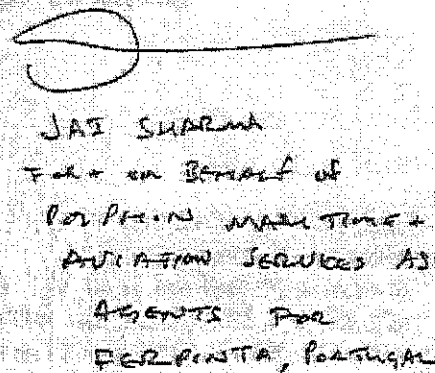 JAI SHARMA
FOR + ON BEHALF OF
DOLPHIN MARITIME +
AVIATION SERVICES AS
AGENTS FOR
FERPINTA, PORTUGAL